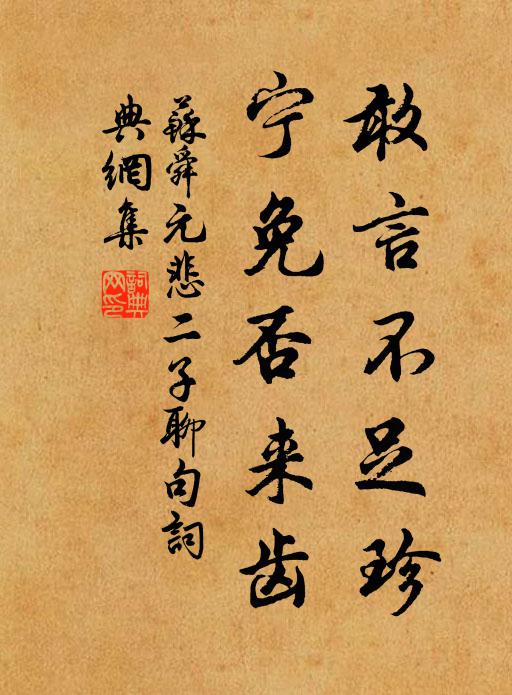 敢言不足珍
宁免否来齿
蘇舜元悲二子聊句詞
典網集
詞典網印